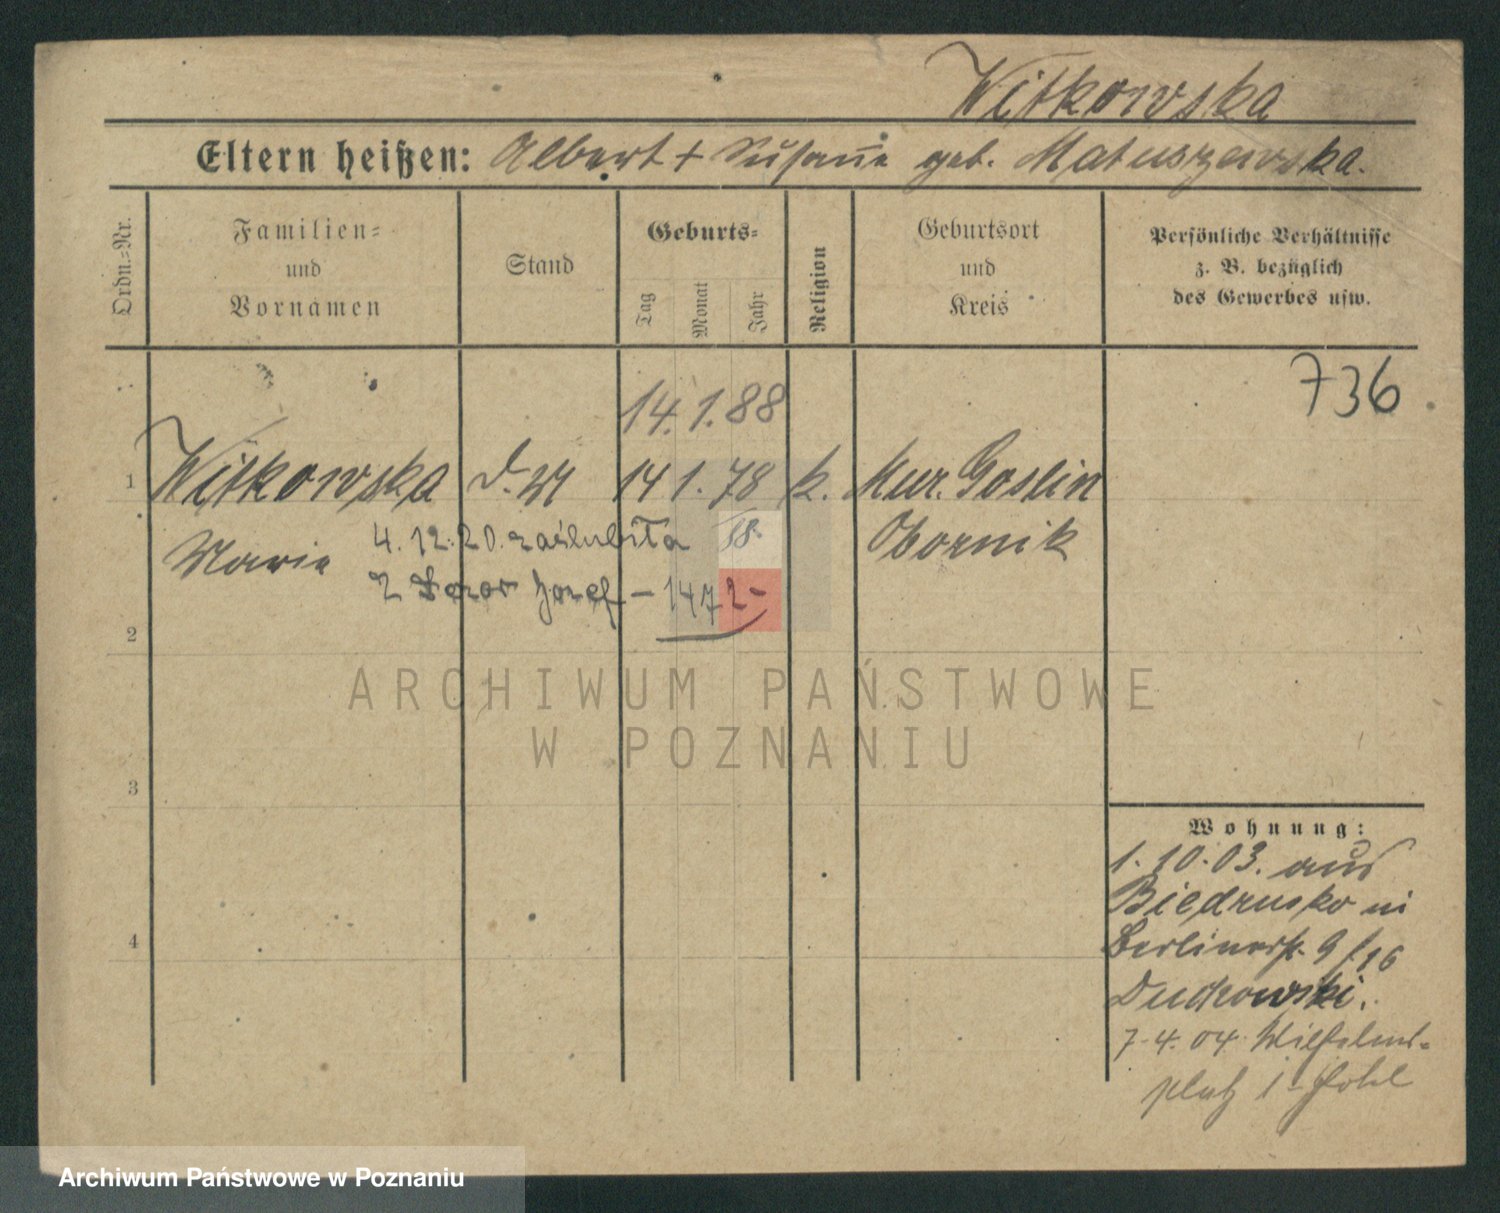 Witkowska
Eltern heißen: Albert + Susanne geb. Matuszewska.
Ordn.-Nr.
Familien- und Vornamen
Stand
Geburts-
Tag Monat Jahr
Religion
Geburtsort und Kreis
Persönliche Verhältnisse
z. B. bezüglich
des Gewerbes usw.
736
14.1.88
1 Witkowska 14 1. 78 k. Mur. Goslin
88
Marie Obornik
4.12.20. zaślubiła
z Józef – 1472 –
2
3
4
Wohnung:
1.10.03. aus
Biedrusko in
Berlinerstr. 9
7.4.04 Wilhelms-
platz 1
ARCHIWUM PAŃSTWOWE
W POZNANIU
Archiwum Państwowe w Poznaniu